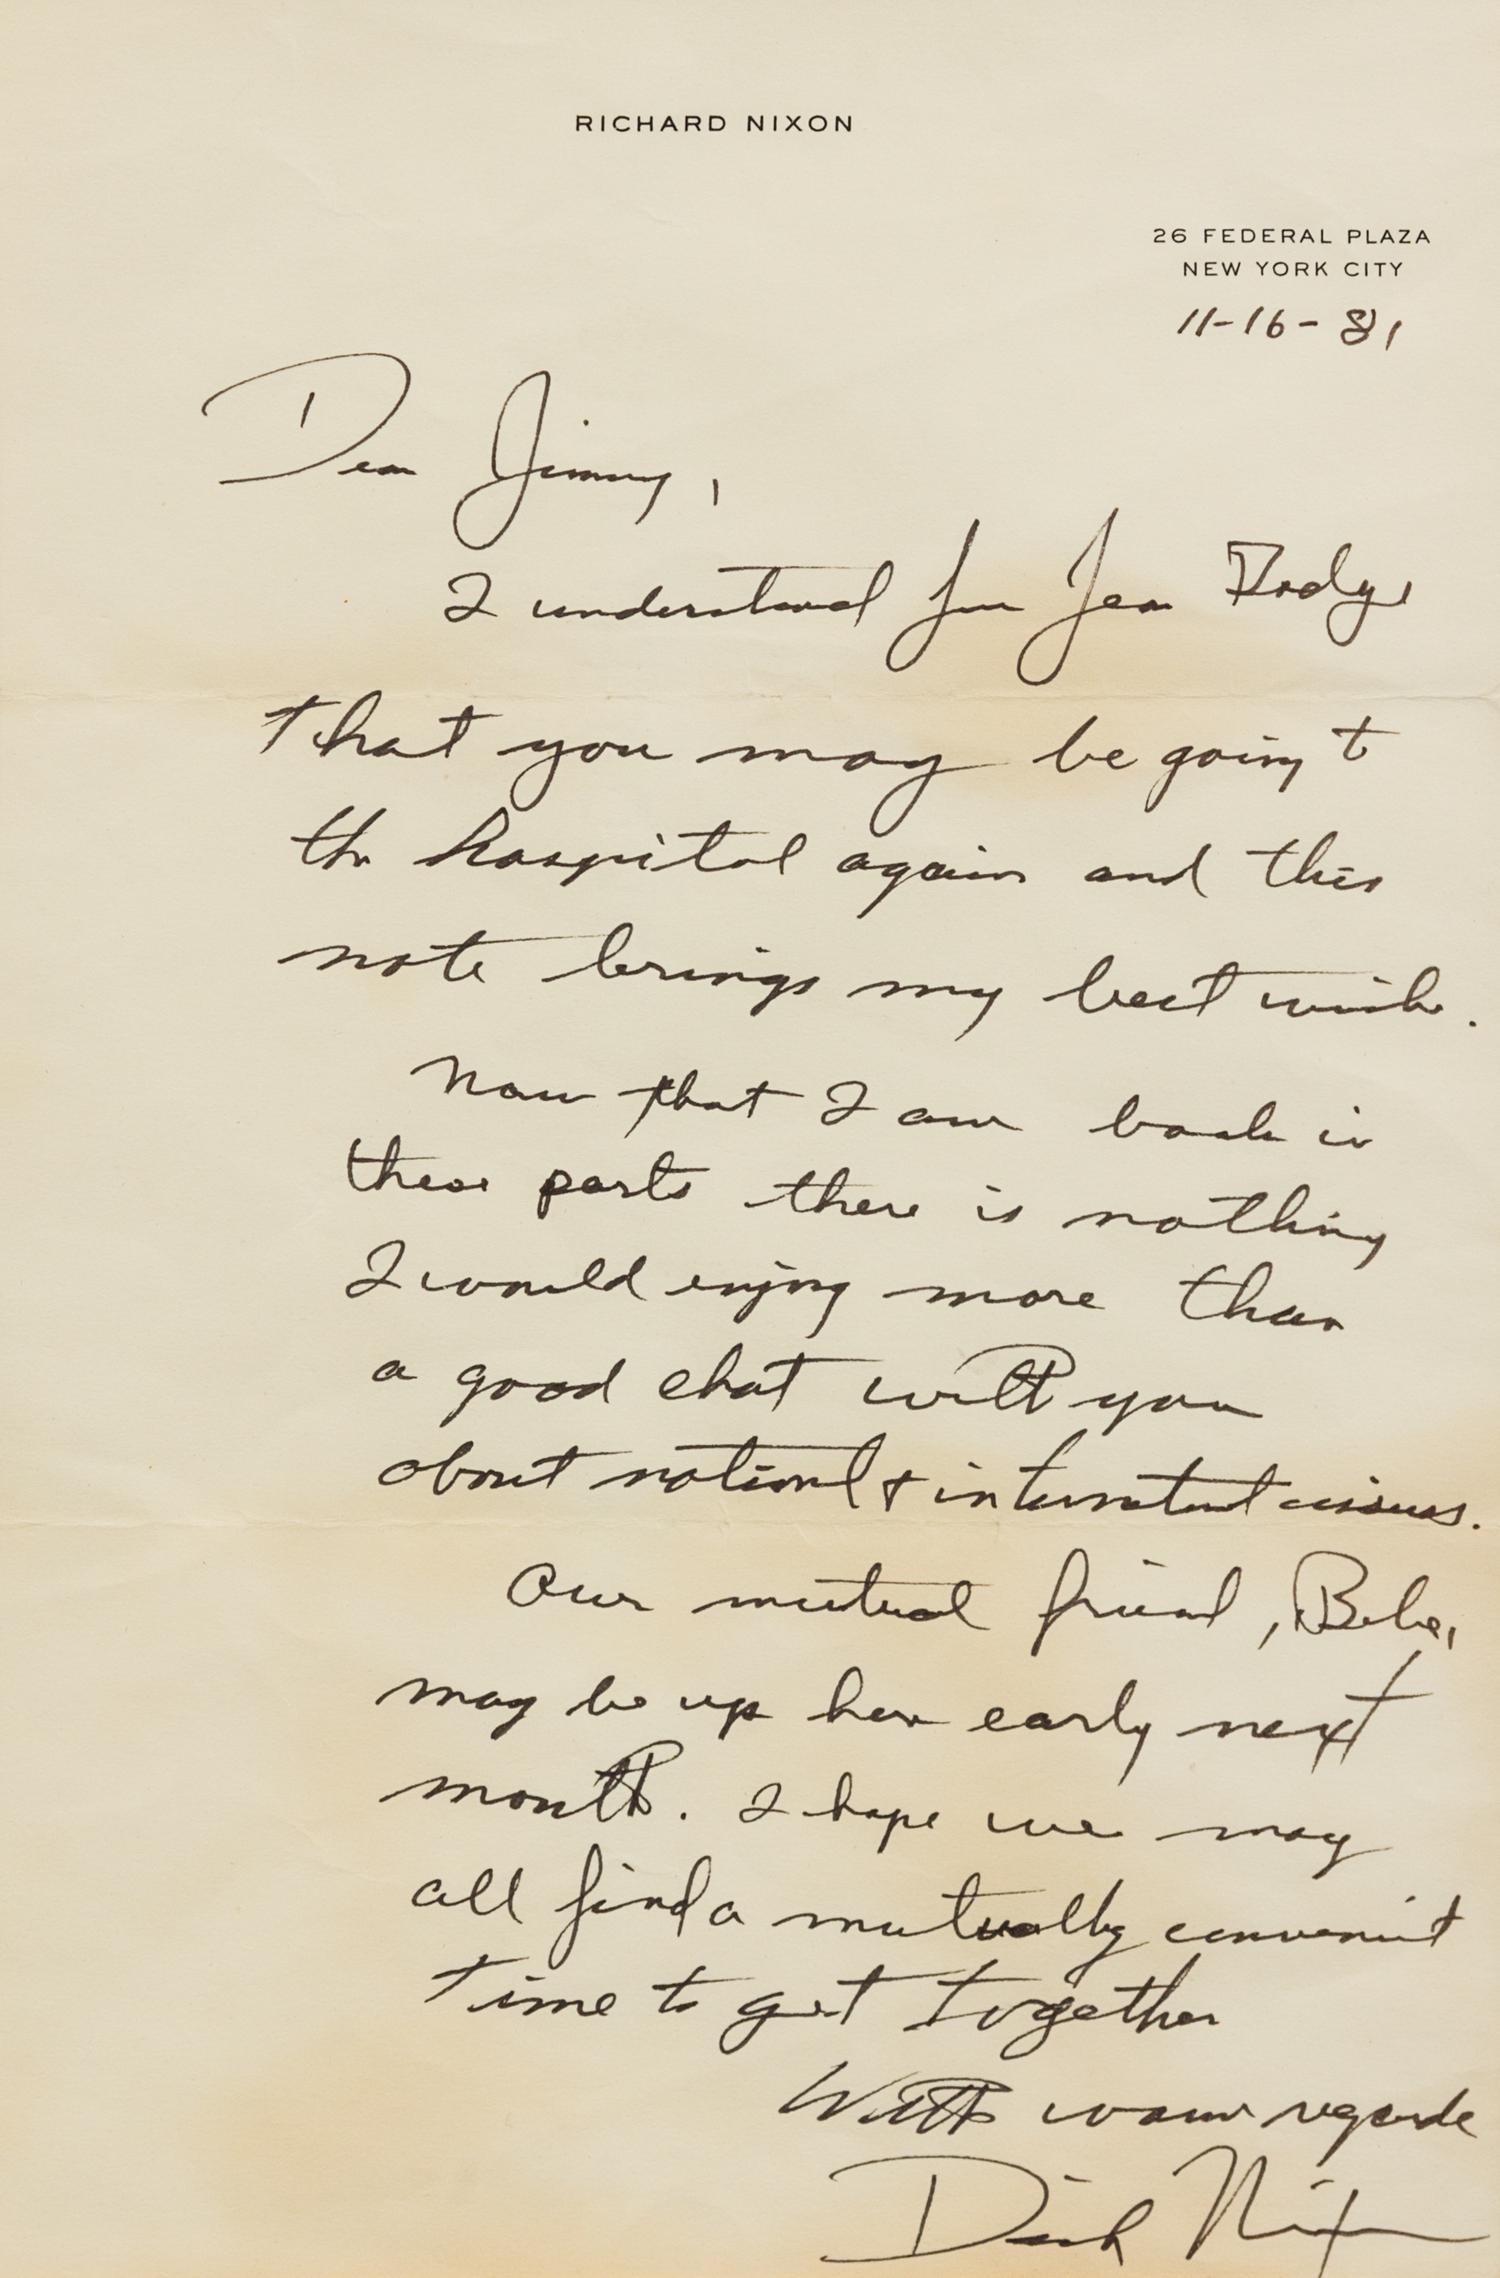 RICHARD NIXON
26 FEDERAL PLAZA
NEW YORK CITY
11-16-81
Dear Jimmy,
I understand from Jean
that you may be going to
the hospital again and this
note brings my best wishes.
Now that I am back in
these parts there is nothing
I would enjoy more than
a good chat with you
about national & international issues.
Our mutual friend, Bebe,
may be up here early next
month. I hope we may
all find a mutually convenient
time to get together
With warm regards
Dick Nixon